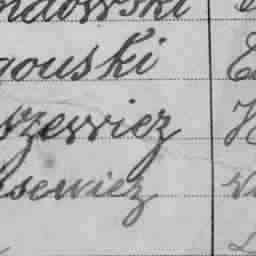 ndowski
gouski E
szewicz H
sewicz W